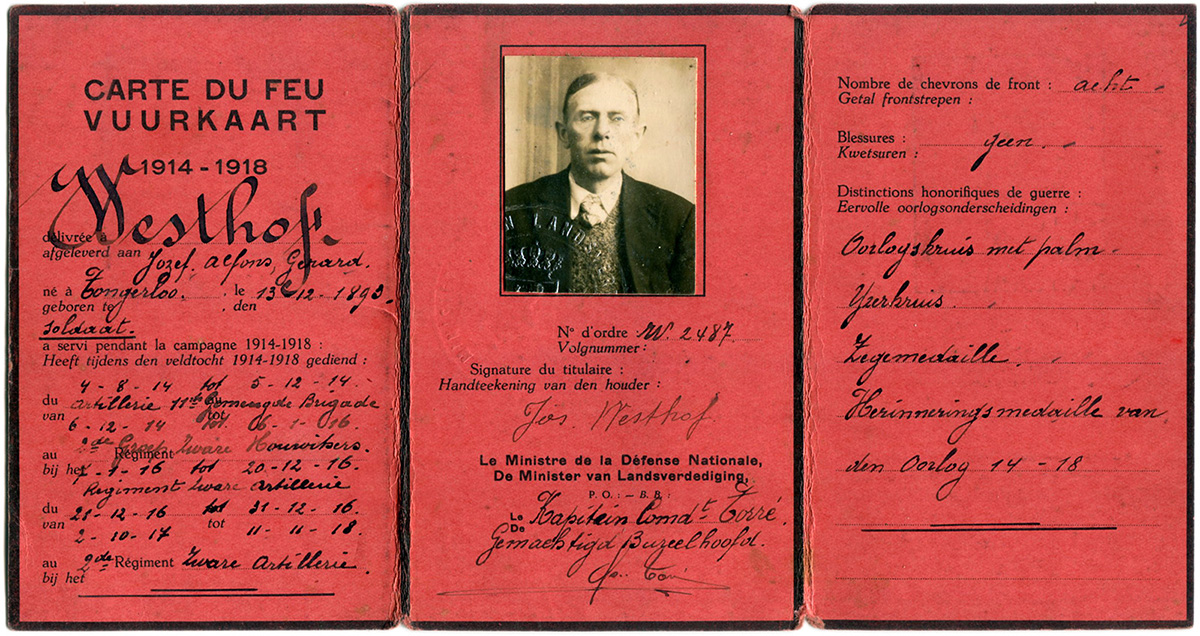 CARTE DU FEU
VUURKAART
1914-1918
Westhof.
délivrée à
afgeleverd aan Jozef. Alfons, Gerard.
né à Tongerloo. le 13-12-1893.
geboren te den
Soldaat.
a servi pendant la campagne 1914-1918 :
Heeft tijdens den veldtocht 1914-1918 gediend :
4-8-14 tot 5-12-14.
du
van Artillerie 11de Gemengde Brigade
6-12-14 tot 6-1-16.
au 2de Groep Zware Houwitsers.
Régiment
bij het 7-1-16 tot 20-12-16.
Regiment Zware Artillerie
du 21-12-16 tot 31-12-16.
van tot
2-10-17 11-11-18.
au 2de Régiment Zware Artillerie.
bij het
N° d'ordre : W. 2487.
Volgnummer :
Signature du titulaire :
Handteekening van den houder :
Jos Westhof
Le Ministre de la Défense Nationale,
De Minister van Landsverdediging,
P. O. : — B. B. :
Le
De Kapitein Comdt Torré.
Gemachtigd Bureelhoofd.
Nombre de chevrons de front : acht -
Getal frontstrepen :
Blessures : geen.
Kwetsuren :
Distinctions honorifiques de guerre :
Eervolle oorlogsonderscheidingen :
Oorlogskruis met palm -
Yzerkruis.
Zegemedaille.
Herinneringsmedaille van
den Oorlog 14-18